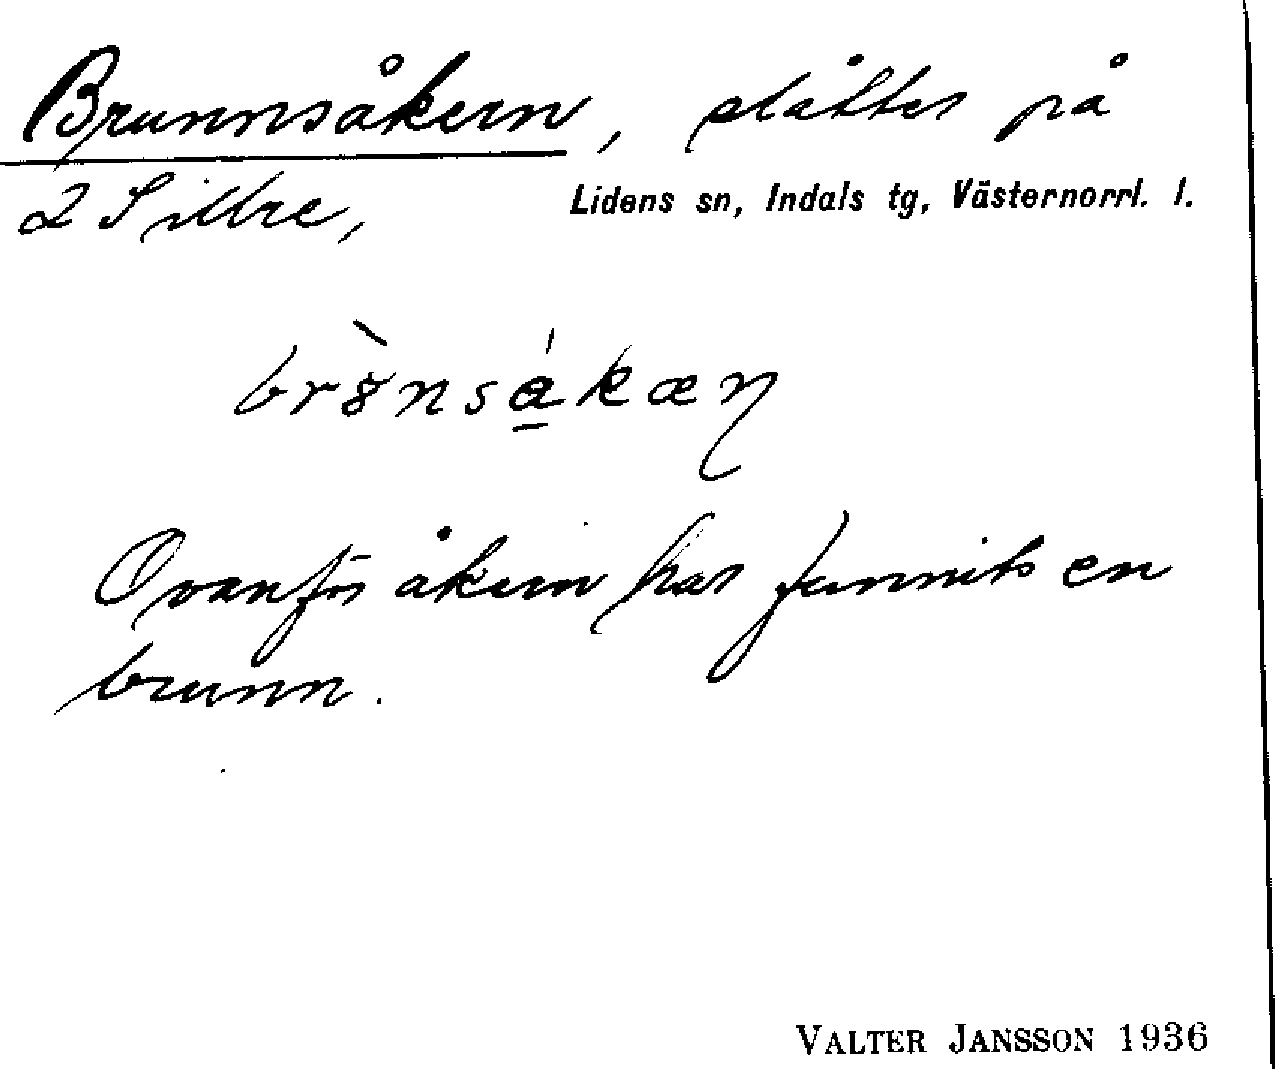 Brunnsåkern, slåtter på
2 Sillre, Lidens sn, Indals tg, Västernorrl. l.
Ovanför åkern har funnits en
brunn.
VALTER JANSSON 1936